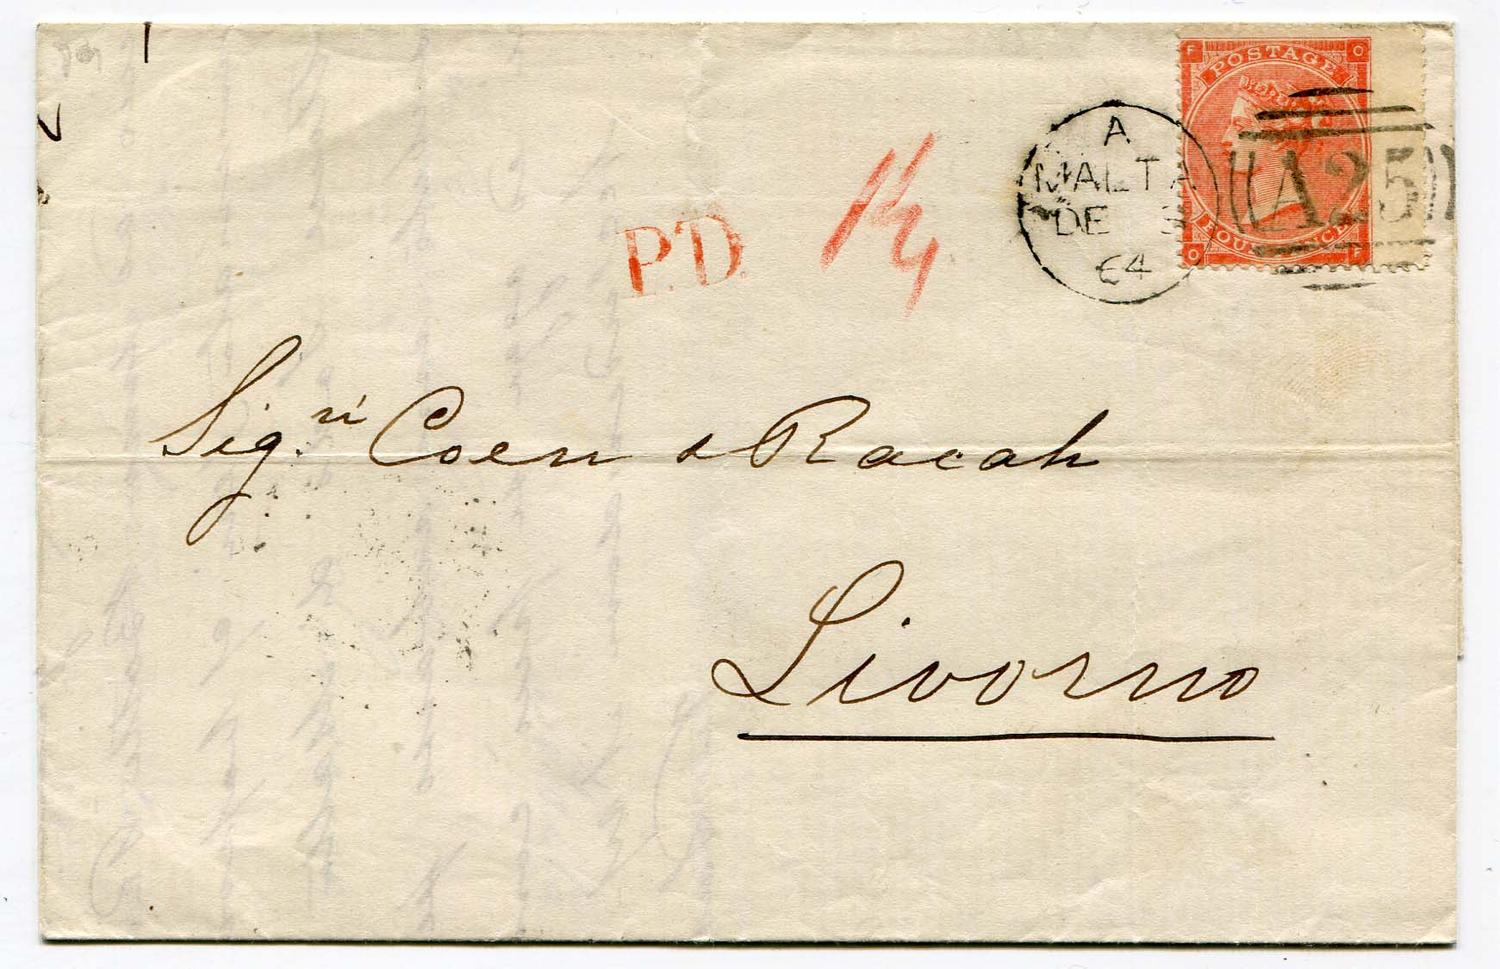 F POSTAGE O
O FOUR PENCE F
A
MALTA
DE 3
64
A25
P.D.
Sig.ri Coen e Racah
Livorno